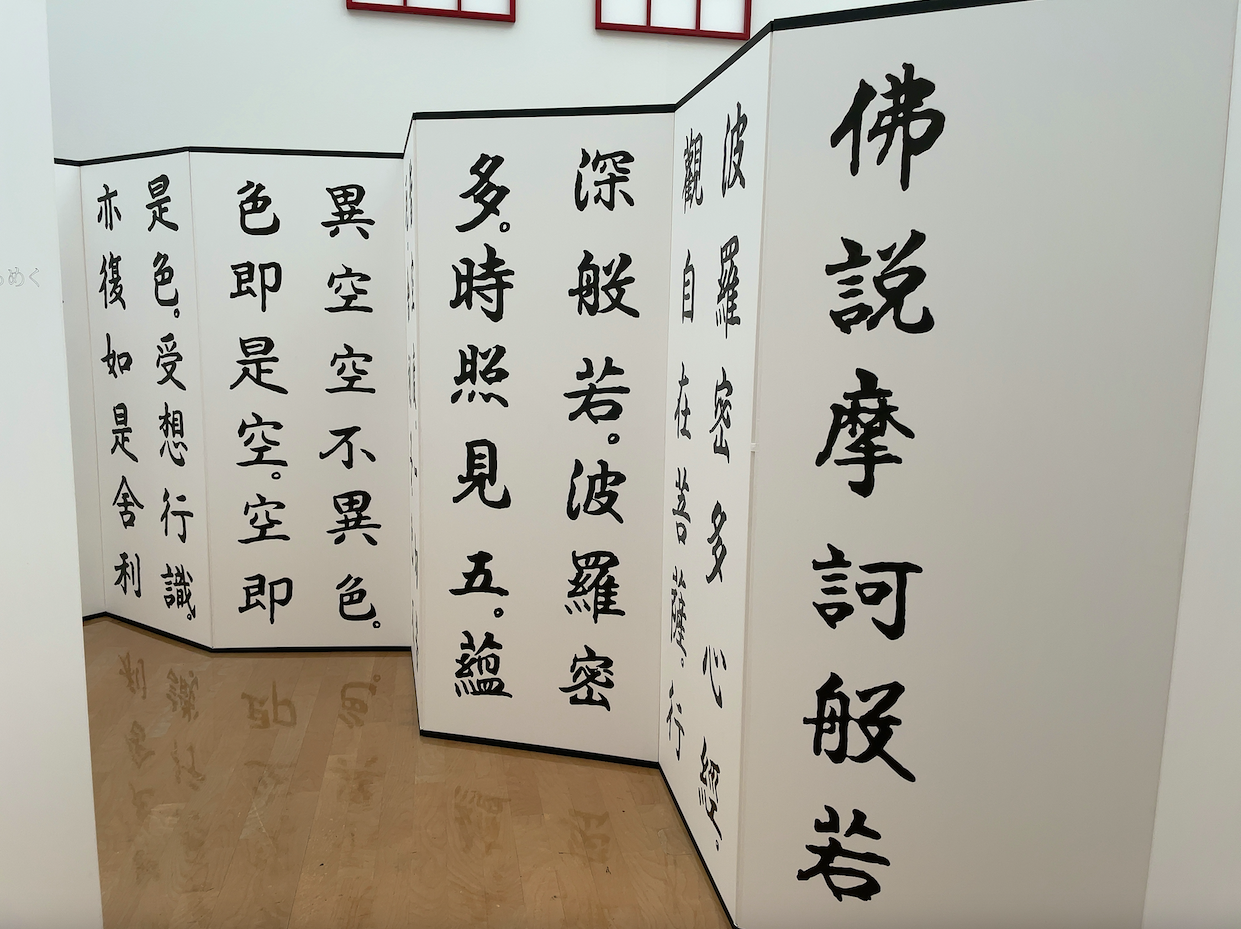 佛説摩訶般若
波羅密多心經。
觀自在菩薩。行
深般若。波羅密
多。時照見五。蘊
異空空不異色。
色即是空。空即
是色。受想行識。
亦復如是舍利
めぐ